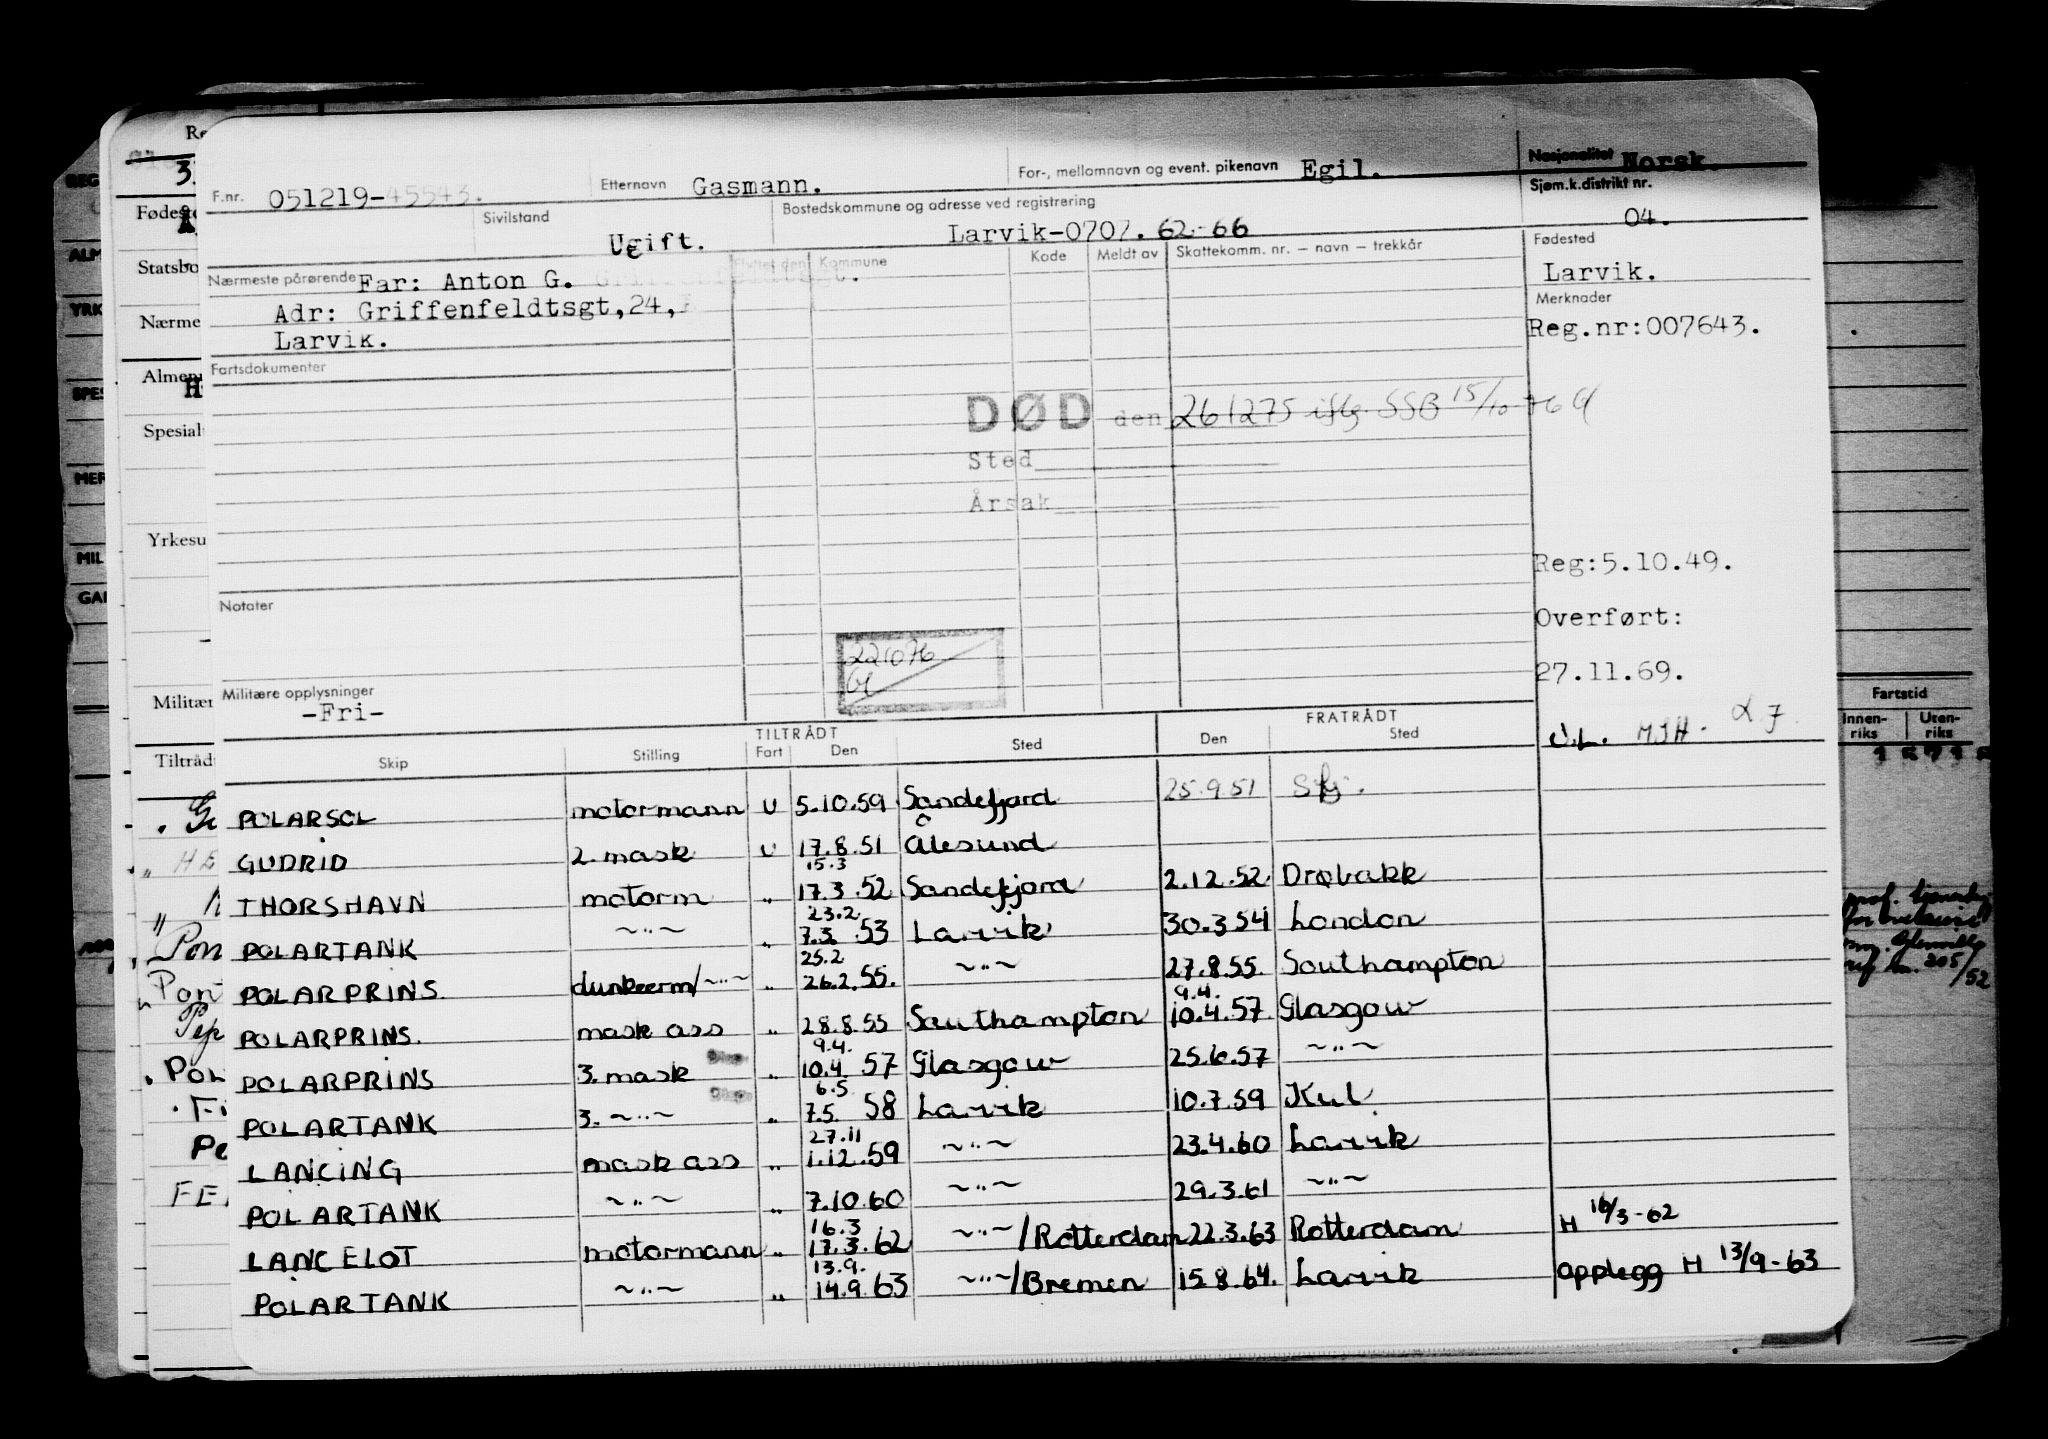 F.nr. 051219-45543. Etternavn Gasmann. For-, mellomnavn og event. pikenavn Egil. Nasjonalitet Norsk.
Sivilstand Ugift. Bostedskommune og adresse ved registrering Larvik-0707. 62-66 Sjøm.k.distrikt nr. 04.
Nærmeste pårørende Far: Anton G.
Adr: Griffenfeldtsgt,24,
Larvik.
Flyttet den Kommune Kode Meldt av Skattekomm. nr. – navn – trekkår
Fødested
Larvik.
Merknader
Reg.nr:007643.
Fartsdokumenter
DØD den 261275 iflg. SSB 15/10-76
Sted
Årsak
Reg:5.10.49.
Overført:
27.11.69.
Notater
221076
Militære opplysninger
-Fri-
TILTRÅDT FRATRÅDT
Skip Stilling Fart Den Sted Den Sted
POLARSOL motormann U 5.10.59 Sandefjord 25.9.51 Sfj.
GUDRID 2. mask U 17.8.51 Ålesund
THORSHAVN motorm „ 15.3 17.3.52 Sandefjord 2.12.52 Drøbakk
POLARTANK ~„~ „ 23.2 7.3.53 Larvik 30.3 54 London
POLARPRINS. dunkeerm/~„~ „ 25.2 26.2.55. ~„~ 27.8.55. Southampton
POLARPRINS. mask ass „ 28.8.55 Southampton 9.4. 10.4.57 Glasgow
POLARPRINS 3. mask „ 9.4. 10.4 57 Glasgow 25.6.57 ~„~
POLARTANK 3. ~„~ „ 6.5 7.5. 58 Larvik 10.7.59 Kiel
LANCING mask ass „ 27.11 1.12.59 ~„~ 23.4.60 Larvik
POLARTANK ~„~ „ 7.10.60 ~„~ 29.3.61 ~„~
LANCELOT motormann „ 16.3 17.3.62 ~„~/Rotterdam 22.3.63 Rotterdam H 16/3-62
POLARTANK ~„~ „ 13.9. 14.9.63 ~„~/Bremen 15.8.64. Larvik opplegg H 13/9-63
Fødeste
Statsbo
Nærme
Almen
Spesial
Yrkesu
Militær
Tiltråd
Fartstid
Innen-riks Uten-riks